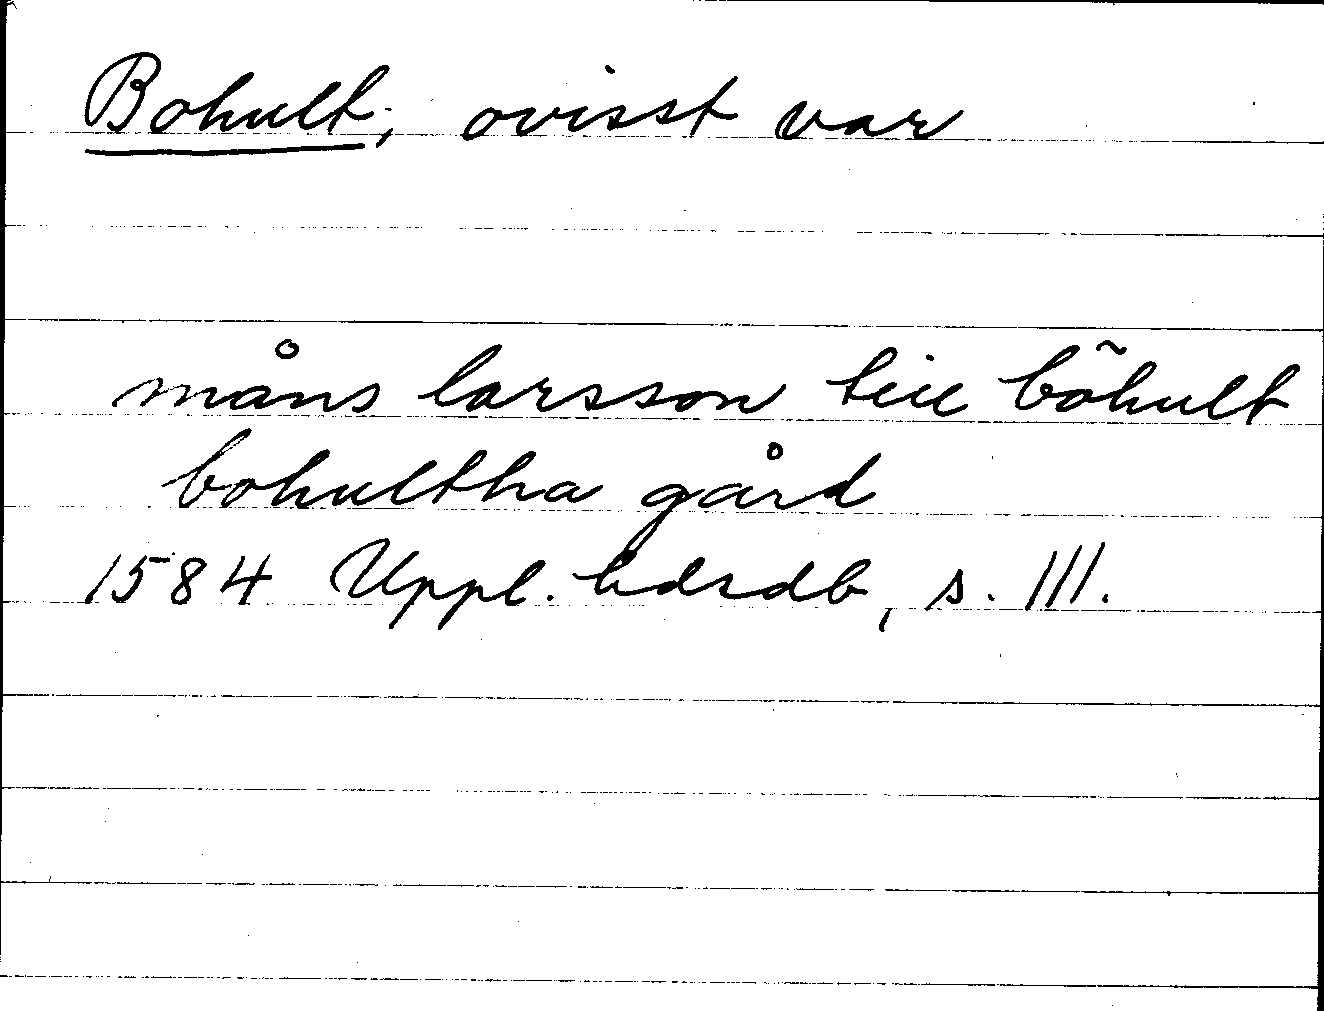 Bohult, ovisst var
måns larsson till bõhult
bohultha gård
1584 Uppl. hdrdb, s. 111.